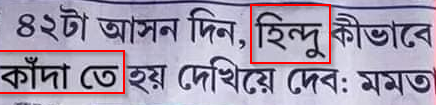 ৪২টা আসন দিন, হিন্দু কীভাবে
কাঁদা তে হয় দেখিয়ে দেব: মমতা